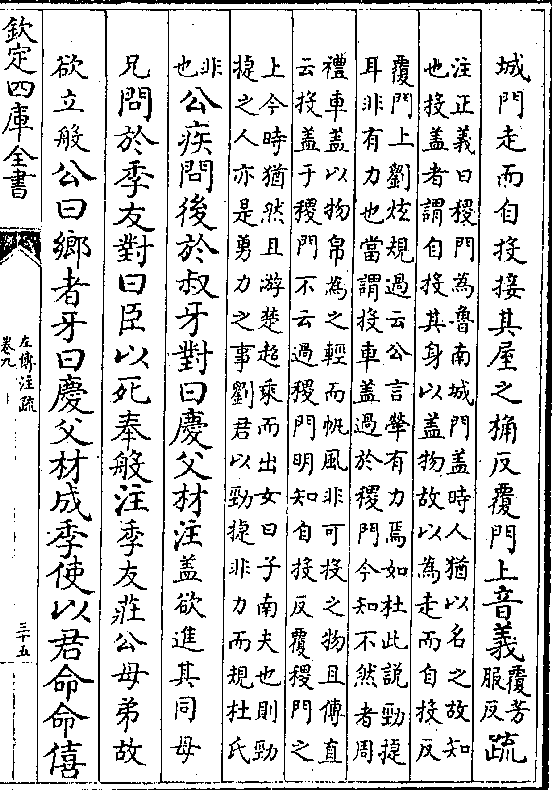 城門走而自投接其屋之桷反覆門上音義覆芳服反疏
注正義曰稷門為魯南城門盖時人猶以名之故知
也投盖者謂自投其身以盖物故以為走而自投反
覆門上劉炫規過云公言犖有力焉如杜此説勁捷
耳非有力也當謂投車盖過於稷門今知不然者周
禮車盖以物帛為之輕而帆風非可投之物且傳直
云投盖于稷門不云過稷門明知自投反覆稷門之
上今時猶然且游楚超乘而出女曰子南夫也則勁
捷之人亦是勇力之事劉君以勁捷非力而規杜氏
非也公疾問後於叔牙對曰慶父材注盖欲進其同母
兄問於季友對曰臣以死奉般注季友莊公母弟故
欲立般公曰鄉者牙曰慶父材成季使以君命命僖
欽定四庫全書
左傳注疏
卷九
三十五